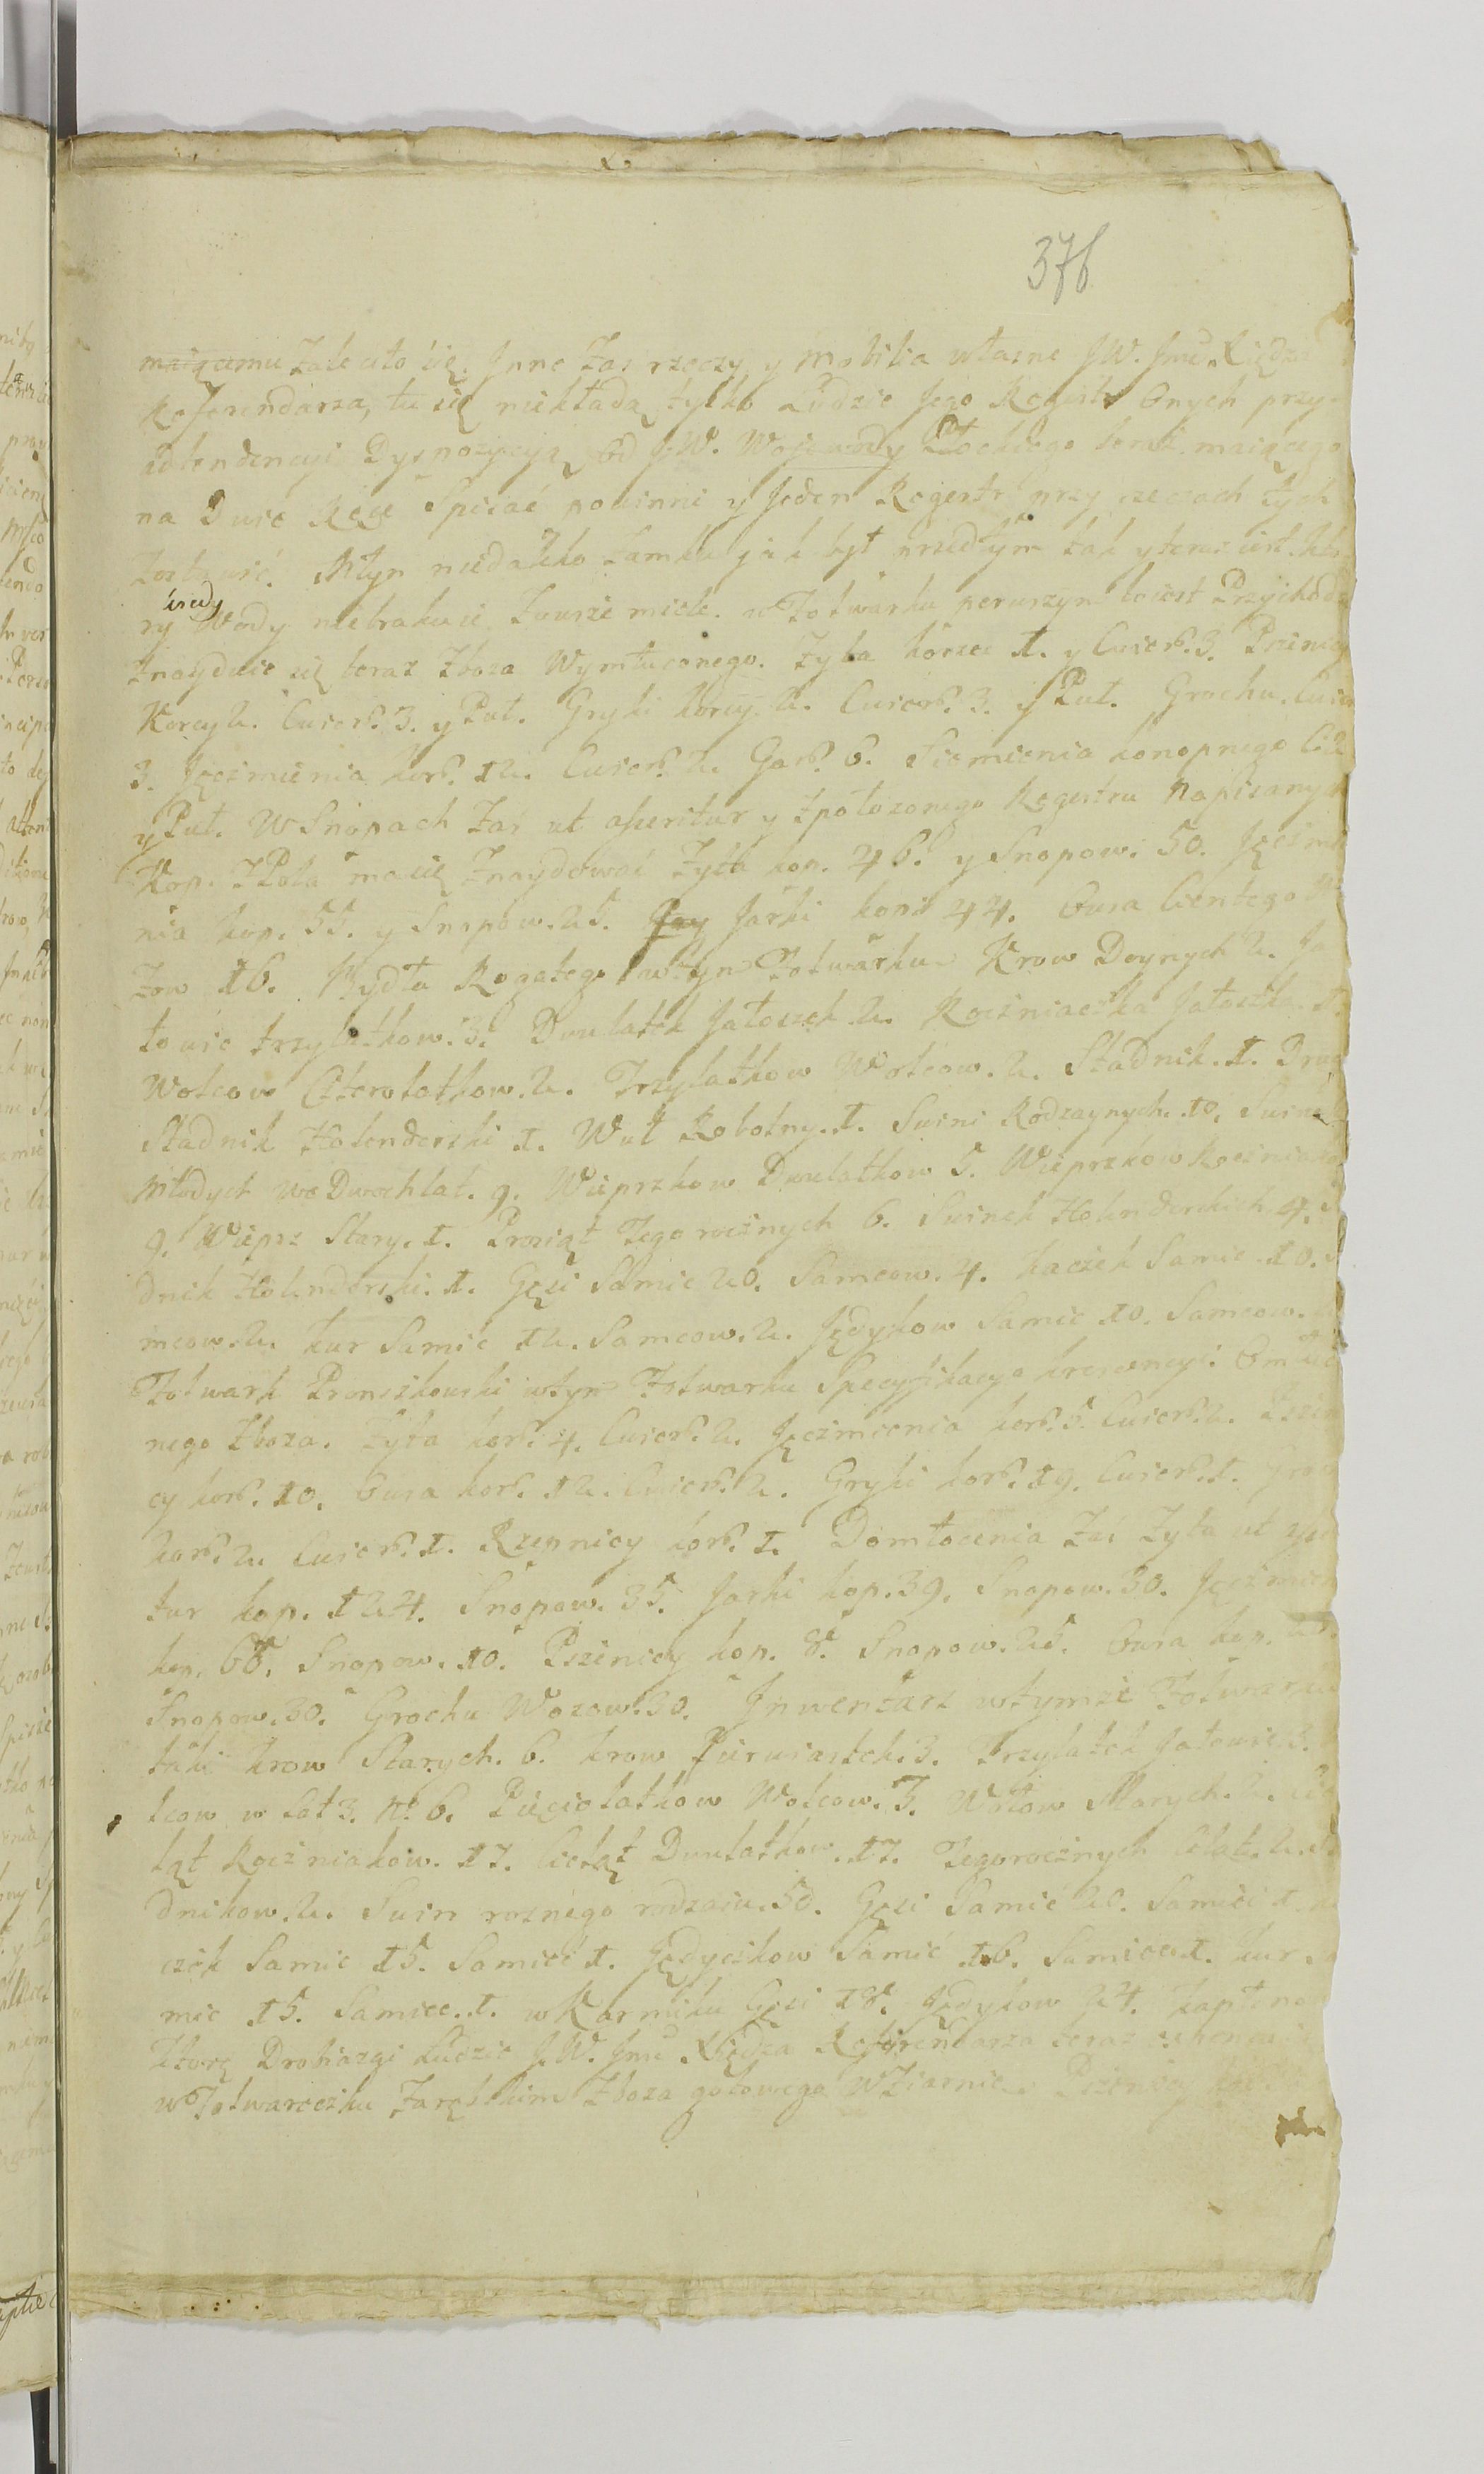 376
maiącemu zaleciło się. Inne zas rzeczy y Mobilia własne JW. Jmć Xiędza
Referendarza, tu się niekładą tylko Ludzie Jego Regestr Onych przy
Dyspozycyą od J.W. Wojewody Płockiego teraz maiącego
na Dwie Ręce Spisać powinni y Jeden Regestr przy rzeczach tych
zostawić. Młyn niedaleko Zamku jak był przedtym tak y teraz iest. któ
ry kiedy Wody niebrakuie zawsze miele. w Folwarku pierwszym to iest
znayduie się teraz zboza Wymłuconego. Zyta korzec 1. y Cwierć. 3. Pszenicy
Korcy 2. Cwierć. 3. y Puł. Gryki korcy. 2. Cwierć. 3. y Puł. Grochu. Cwier
3. Jęczmienia kor. 12. Cwierć. 2. Gar. 6. Siemienia konopnego
y Puł. W Snopach zaś ut asseritur y zpołozonego Regestru Napisanych
Kop. Zboła ma się znaydować Zyta kop. 46. y Snopow. 50. Jęczmie
nia kop. 55. y Snopow. 25. Jarki kop. 44. Owsa
zow 16. Bydła Rogatego w tym Folwarku Krow Doynych 2. Ja
łowic trzylatkow. 3. Dwulatek Jałoszek 2. Roczniaczka Jałoszka. 1.
Wolcow Czterolatkow. 2. Trzylatkow Wolcow. 2. Stadnik. 1. Drug
Stadnik Holenderski 1. Wuł Robotny. 1. Swini Rodzaynych. 10. Swinek
Młodych we Dwoch lat. 9. Wieprzkow Dwulatkow 5. Wieprzkow Roczniako
9. Wieprz Stary. 1. Prosiąt Tegorocznych 6. Swinek Holenderskich 4. S
dnik Holenderski. 1. Gęsi Samic 20. Samcow. 4. kaczek Samic. 10. S
mcow. 2. kur Samic 12. Samcow. 2. Jędykow Samic 10. Samcow.
Folwark Pronszkowski w tym Folwarku Specyfikacya krescencyi Omłuco
nego zboza. Zyta kor. 4. Cwierć. 2. Jęczmienia kor. 5. Cwierć. 2. Pszeni
cy kor. 10. Owsa kor. 12. Cwierć. 2. Gryki kor. 19. Cwierć. 1. Groch
kor. 2. Cwierć. 1. Rzepnicy kor. 1. Domłocenia zas Zyta ut
tur kop. 124. Snopow. 35. Jarki kop. 39. Snopow. 30. Jęczmien
kop. 68. Snopow. 10. Pszenicy kop. 8. Snopow. 25. Owsa kop.
Snopow. 30. Grochu Wozow. 30. Inwentarz w tymze Folwarku
taki krow Starych. 6. krow Pierwiastek. 3. Trzylatek Jałowic 3.
lcow w lat 3. No 6. Pięciolatkow Wolcow. 3. Wołow Starych. 2. Cie
ląt Roczniakow. 17. Cieląt Dwulatkow. 17. Tegorocznych Cieląt. 2. Sta
dnikow. 2. Swin roznego rodzaiu. 50. Gęsi Samic 20. Samiec 1.
czek Samic 15. Samiec 1. Jędyczkow Samic 16. Samiec 1. kur Sa
mic 15. Samiec. 1. w Karmiku Gęsi 18. Jędykow 24. kapłono
Drobiazgi Ludzie J.W. Jmć Xiędza Referendarza teraz
w Folwarczku Zarębskim Zboza gotowego w Ziarnie. Pszenicy